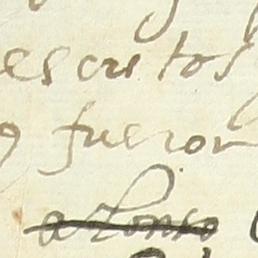 escritos
fueron
alonso